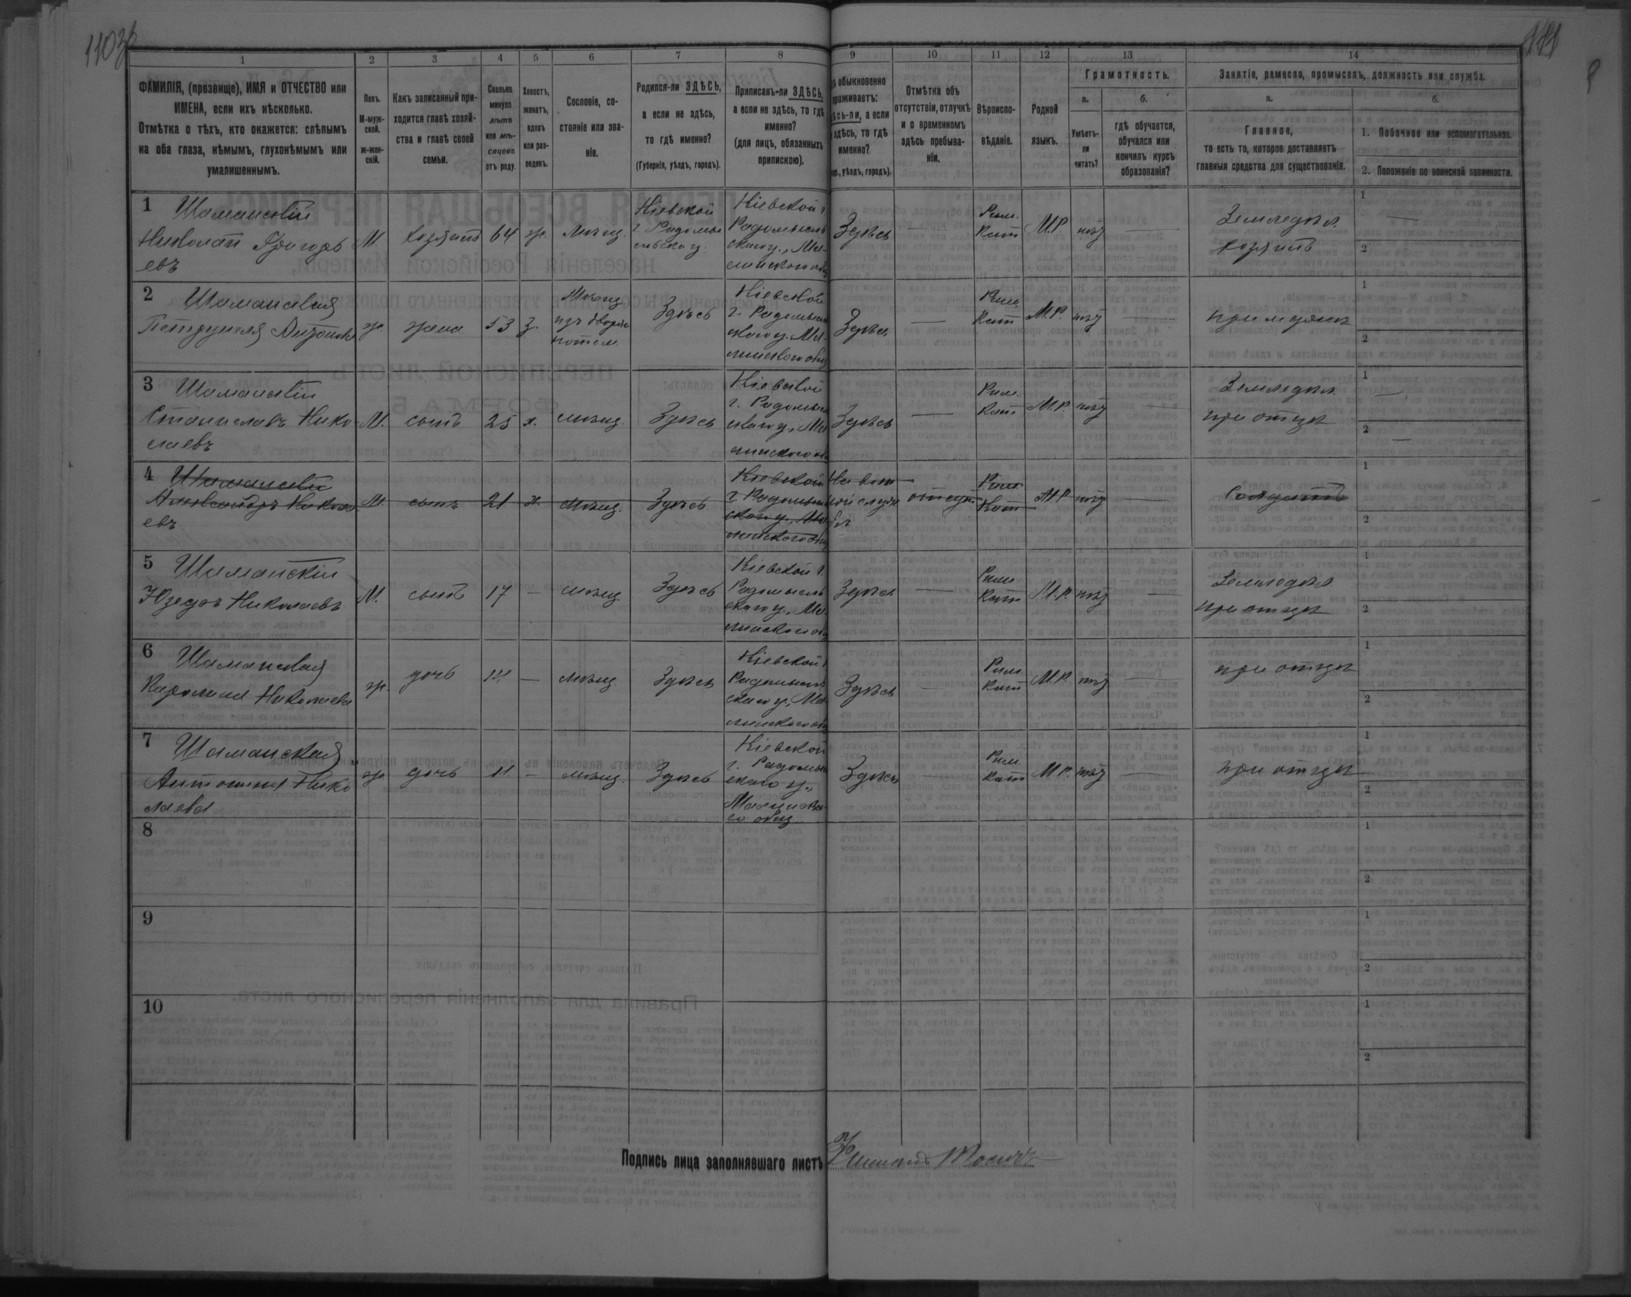 1103
1
2
3
4
5
6
7
8
9
10
11
12
13
14
ФАМИЛІЯ, (прозвище), ИМЯ и ОТЧЕСТВО или
ИМЕНА, если ихъ нѣсколько.
Отмѣтка о тѣхъ, кто окажется: слѣпымъ
на оба глаза, нѣмымъ, глухонѣмымъ или
умалишеннымъ.
Полъ.
М-муж-
ской.
ж-жен-
скій.
Какъ записанный при-
ходится главѣ хозяй-
ства и главѣ своей
семьи.
Сколько
минуло
лѣтъ
или мѣ-
сяцевъ
отъ роду.
Холостъ,
женатъ,
вдовъ
или раз-
веденъ.
Сословіе, со-
стояніе или зва-
ніе.
Родился-ли ЗДѢСЬ,
а если не здѣсь,
то гдѣ именно?
(Губернія, уѣздъ, городъ).
Приписанъ-ли ЗДѢСЬ,
а если не здѣсь, то гдѣ
именно?
(для лицъ, обязанныхъ
припискою).
обыкновенно
проживаетъ:
здѣсь-ли, а если
не здѣсь, то гдѣ
именно?
уѣздъ, городъ).
Отмѣтка объ
отсутствіи, отлучкѣ
и о временномъ
здѣсь пребыва-
ніи.
Вѣроиспо-
вѣданіе.
Родной
языкъ.
Грамотность.
а.
Умѣетъ-
ли
читать?
б.
гдѣ обучается,
обучался или
кончилъ курсъ
образованія?
Занятіе, ремесло, промыселъ, должность или служба.
а.
Главное,
то есть то, которое доставляетъ
главныя средства для существованія.
б.
1. Побочное или вспомогательное.
2. Положеніе по воинской повинности.
1 Шаманскій
Николай Григорь
евъ
М хозяинъ 64 ж. мѣщ.
Кіевской
г. Радомы
сльского у.
Кіевской г.
Радомысль
скаго у., Ма
линского общ
Здѣсь — Рим.
Кат М.Р. нѣт —
Земледѣл.
хозяинъ
1 —
2
2 Шаманская
Петрунеля Антонова
ж. жена 53 з.
Мѣщ
изъ дворян
Здѣсь
Кіевской
г. Радомысл
скаго у. Ма
линского общ
Здѣсь — Рим
Кат М.Р. нѣт —
при мужѣ
1
2
3 Шаманскій
Станиславъ Нико
лаевъ
М. сынъ 25 х. мѣщ Здѣсь
Кіевской
г. Радомы
скаго у. Ма
линского о
Здѣсь — Рим.
Кат М.Р. нѣт —
Земледѣл
при отцѣ
1 —
2 —
4 Шаманскій
Александръ Никола
евъ
М. сынъ 21 х. мѣщ. Здѣсь
Кіевской
г. Радомысл
скаго у., Ма
линского общ
На воен
ной служ
бѣ
отсут. Рим
Кат М.Р. нѣт —
Солдатъ
1
2
5 Шаманскій
Юзефъ Николаевъ
М. сынъ 17 — мѣщ Здѣсь
Кіевской г.
Радомысль
скаго у., Ма
линского общ
Здѣсь — Рим
Кат М.Р. нѣт —
Земледѣл
при отцѣ
1
2
6 Шаманская
Каролина Николаева
ж. дочь 14 — мѣщ Здѣсь
Кіевской г.
Радомысль
скаго у., Ма
линского общ
Здѣсь — Рим
Кат М.Р. нѣт —
при отцѣ
1
2
7 Шаманская
Антонина Нико
лаева
ж дочь 11 — мѣщ. Здѣсь
Кіевской
г. Радомысл
скаго у.,
Малинска
го общ
Здѣсь — Рим
Кат М.Р. нѣт —
при отцѣ
1
2
8
1
2
9
1
2
10
1
2
Подпись лица заполнявшаго листъ